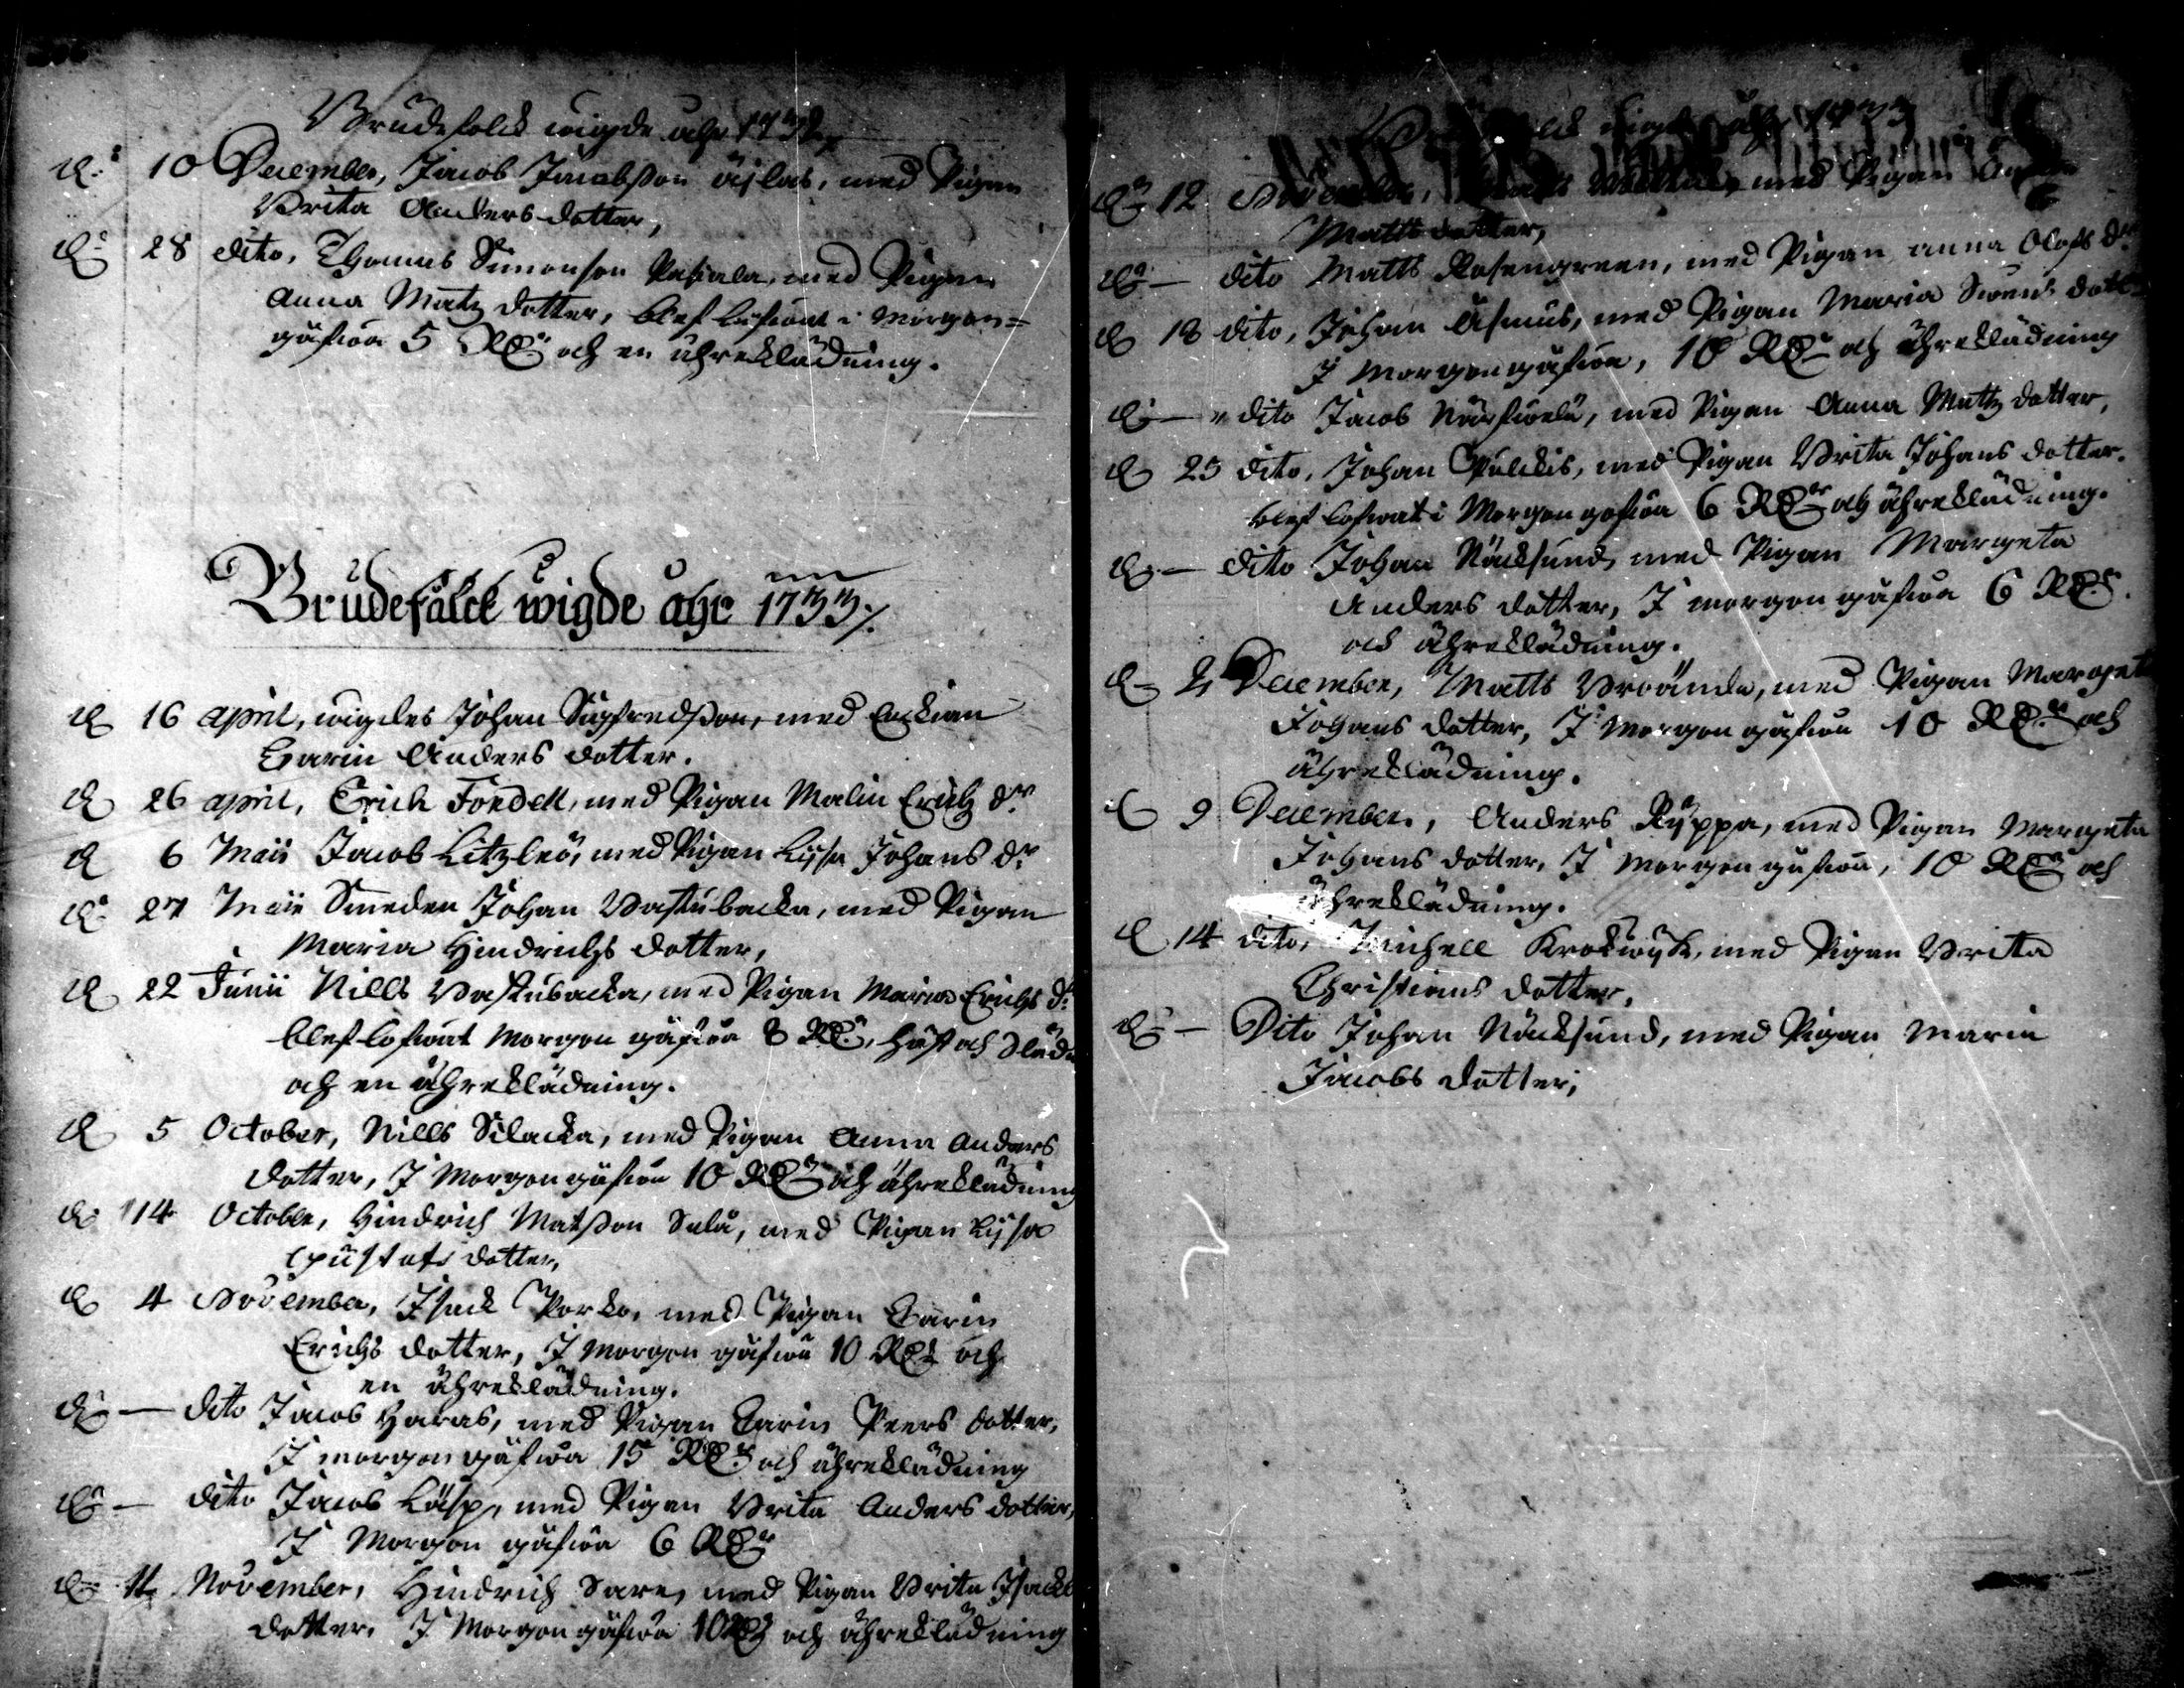 Brudefolck wigde åhr 1732
d. 10 December, Jacob Jacobsson äijlas, med Pigan
Brita Andersdotter,
d. 28 dito, Thomas Simonson Pasiala, med Pigan
Anna Matz dotter, blef lofwat i Morgon=
gåfwa 5 RDr och en ähreklädning.
Brudefålck wigde åhr 1733
d. 16 april, wigdes Johan Sigfredsson, med Enckian
Carin Anders dotter.
d. 26 april, Erich Fordell, med Pigan Malin Erichz dr
d. 6 Maii Jacob Litzleö, med Pigan Lijsa Johans dr
d. 27 Maii Smeden Johan Wastubacka, med Pigan
Maria Hindrichs dotter,
d. 22 Junii Nills Wastubacka, med Pigan Maria Erichs dr
blef lofwat Morgon gåfwa 8 RDr, häst och släda
och en ähreklädning.
d. 5 October, Nills Silacka, med Pigan Anna Anders
dotter, I Morgongåfwa 10 RDr och ähreklädning
d. 14 October, Hindrich Matsson Salå, med Pigan Lijsa
Gustafs dotter,
d. 4 November, Isack Porko, med Pigan Carin
Erichs dotter, I Morgon gåfwa 10 RDr och
en ähreklädning.
d. — dito Jacob Haras, med Pigan Carin Peers dotter,
I morgongåfwa 15 RDr och ähreklädning
d. — dito Jacob Läsp, med Pigan Brita Anders dotter,
I Morgon gåfwa 6 RDr
d. 11 November, Hindrich Sare, med Pigan Brita Isacks
dotter. I Morgongåfwa 10 RDr och ähreklädning
wigde åhr 1733
d. 12 November, med Pigan
Matts dotter,
d. — dito Matts Rosengreen, med Pigan anna Olofs dr
d. 18 dito, Johan Asmus, med Pigan Maria Swens dotter
I Morgongåfwa, 10 RDr och ähreklädning
d. — dito Jacob Närfwelä, med Pigan Anna Mattz dotter,
d. 25 dito, Johan Pulckis, med Pigan Brita Johans dotter.
blef lofwat i Morgongåfwa 6 RDr och ähreklädning.
d. — dito Johan Näcksund, med Pigan Margeta
Anders dotter, I morgongåfwa 6 RDr.
och ähreklädning.
d. 2 December, Matts Wrånda, med Pigan Margeta
Johans dotter, I Morgongåfwa 10 RDr och
ähreklädning.
d. 9 December, Anders Ryppa, med Pigan Margeta
Johans dotter, I Morgongåfwa, 10 RDr och
ähreklädning.
d. 14 dito, Michell Krokwijk, med Pigan Brita
Christians dotter,
d. — Dito Johan Näcksund, med Pigan Maria
Jacobs dotter,